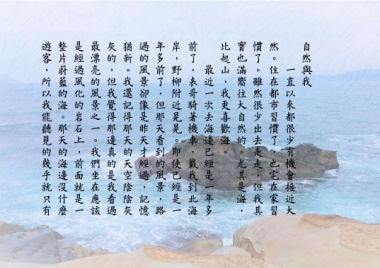 自然與我
一直以來都很少有機會接近大
然。住在都市習慣了，也宅在家習
慣了。雖然很少出去走走，但我其
實也滿嚮往大自然的，尤其是海，
比起山，我更喜歡海。
最近一次去海邊已經是一年多
前了，表哥騎著機車，載我到北海
岸，野柳附近晃晃。即使已經是一
年多前了，但那天看到的風景，路
過的風景卻像是昨天才經過，記憶
猶新。我還記得那天的天空陰陰灰
灰的，但我覺得那邊真的是我看過
最漂亮的風景之一。我們坐在應該
是經過風化的岩石上，前面就是一
整片蔚藍的海。那天的海邊沒什麼
遊客，所以我能聽見的幾乎就只有